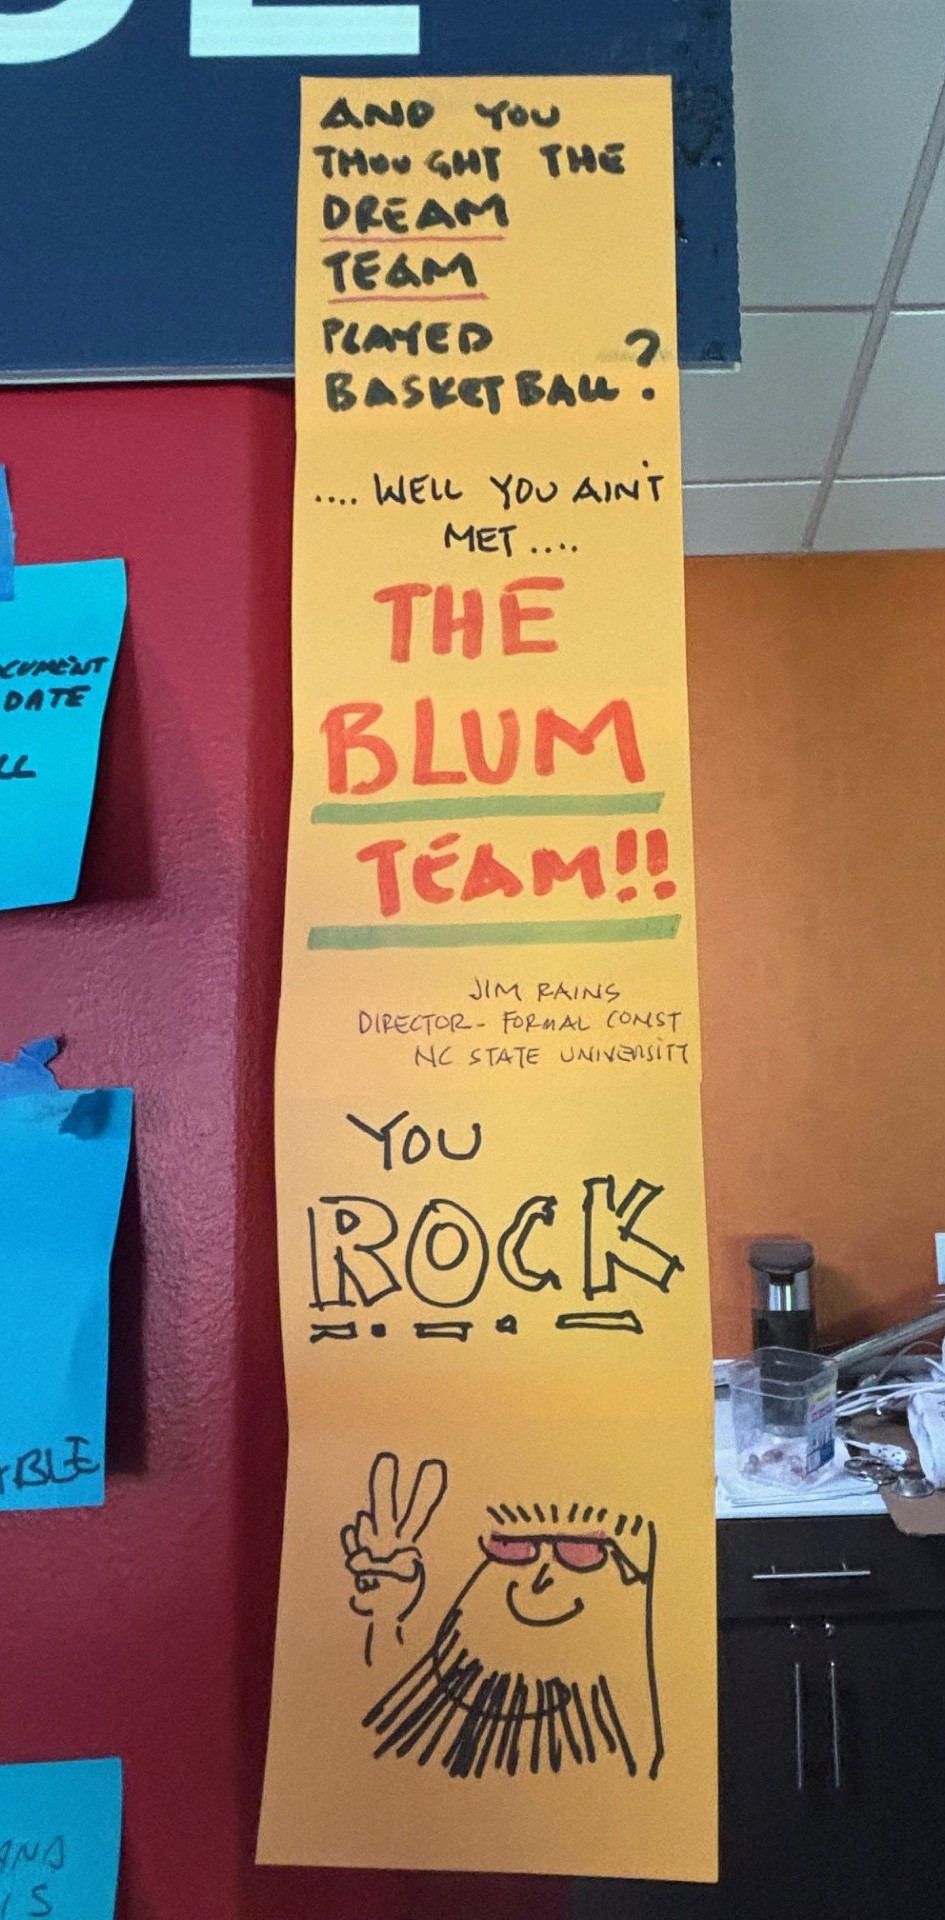 AND YOU
THOUGHT THE
DREAM
TEAM
PLAYED
BASKETBALL?
.... WELL YOU AIN'T
MET ....
THE
BLUM
TEAM!!
JIM RAINS
DIRECTOR - FORMAL CONST
NC STATE UNIVERSITY
YOU
ROCK
CUMENT
DATE
LL
ABLE
AND
IS